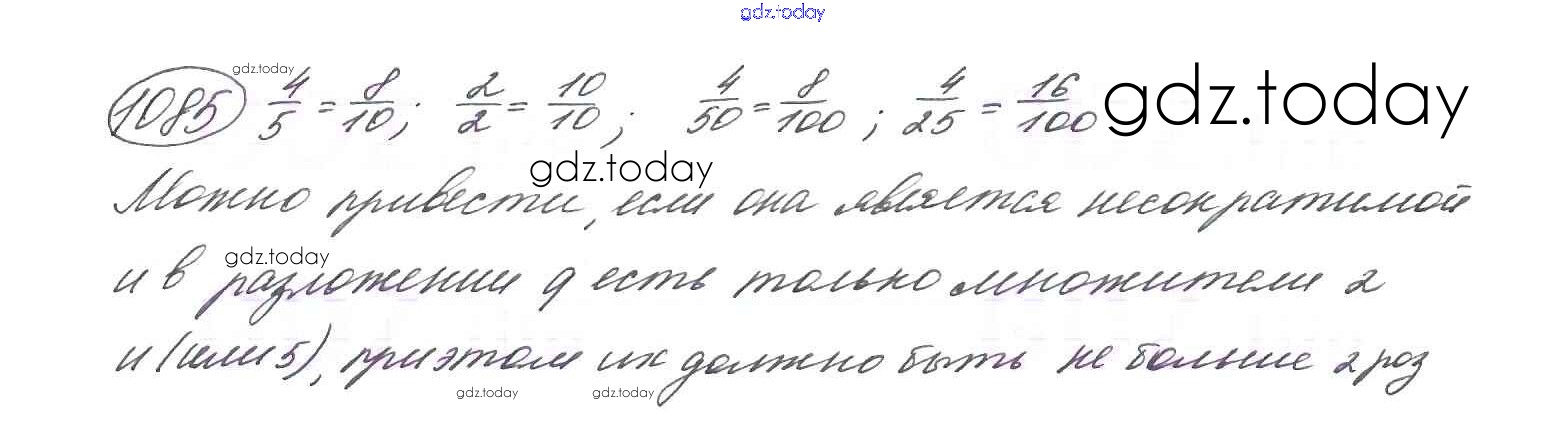 gdz.today
gdz.today
1085 4/5 = 8/10; 2/2 = 10/10; 4/50 = 8/100; 4/25 = 16/100 gdz.today
gdz.today
Можно привести, если она является несократимой
gdz.today
и в разложении q есть только множители 2
и (или 5), при этом их должно быть не больше 2 роз
gdz.today gdz.today